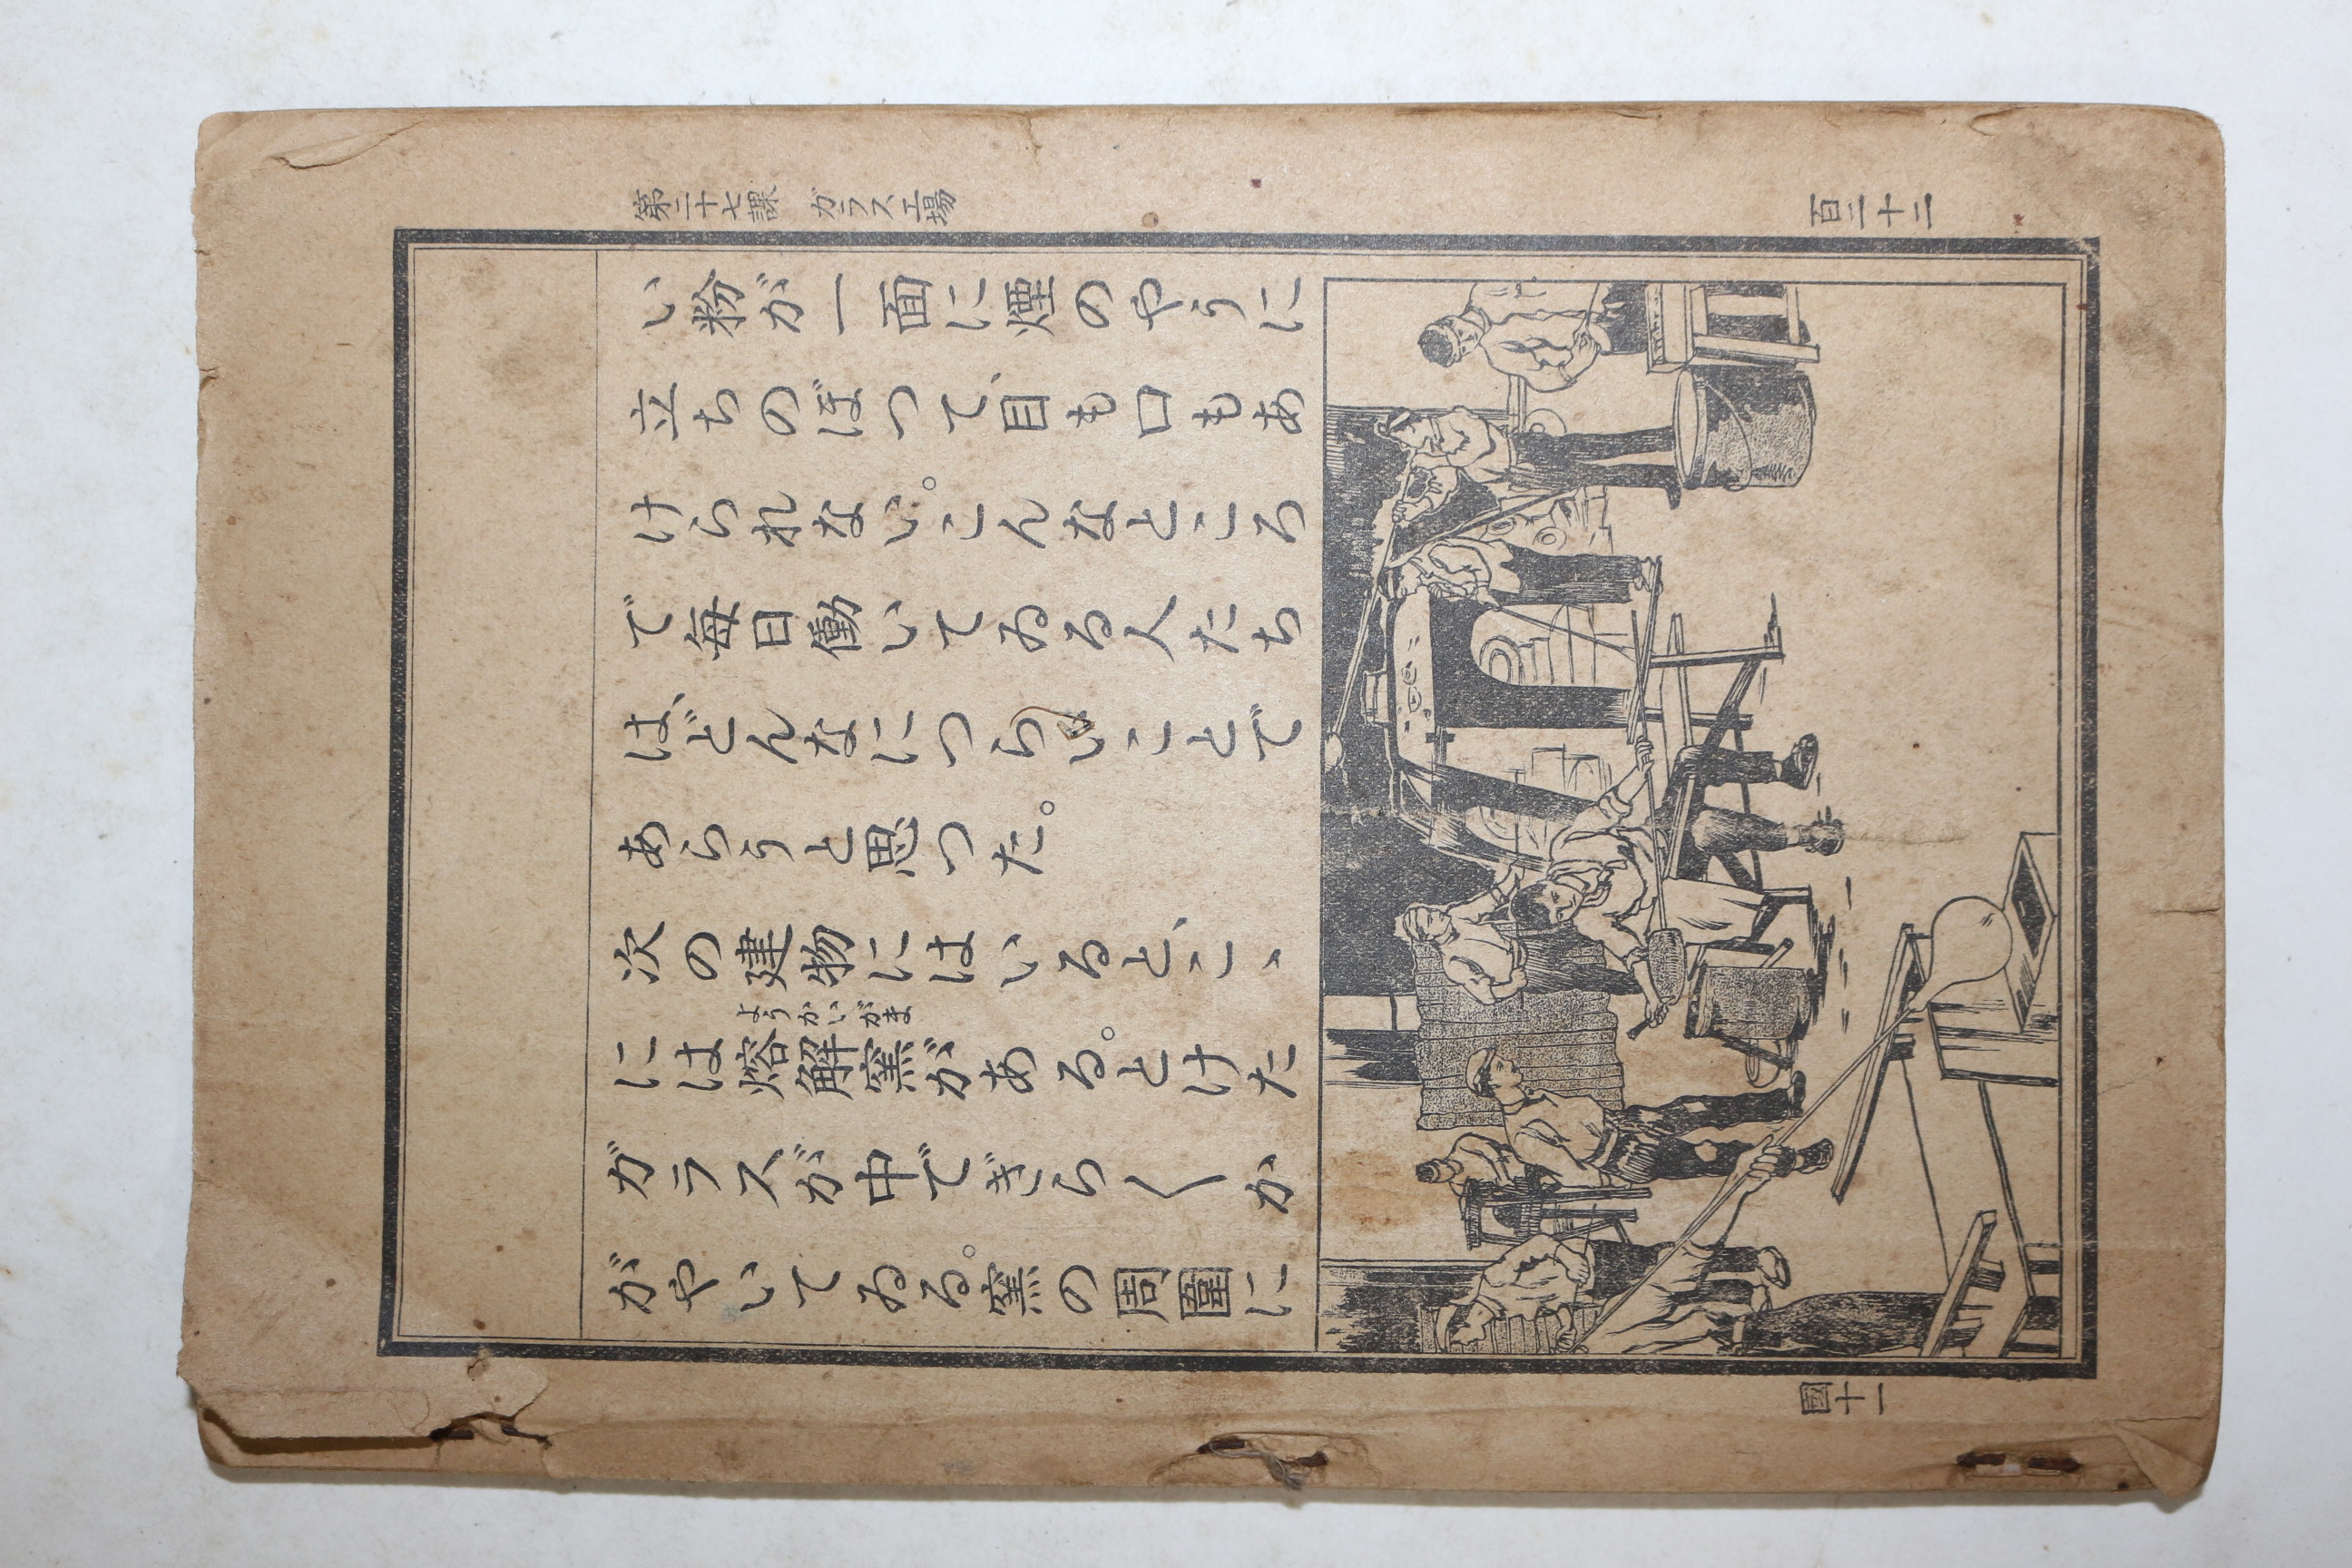 第二十七課　ガラス工場
百二十二
い粉が一面に煙のやうに
立ちのぼつて、目も口もあ
けられない。こんなところ
で毎日働いてゐる人たち
は、どんなにつらいことで
あらうと思つた。
次の建物にはいると、こゝ
には熔解窯がある。とけた
ようかいがま
ガラスが中でぎら〱か
がやいてゐる。窯の周圍に
國十一